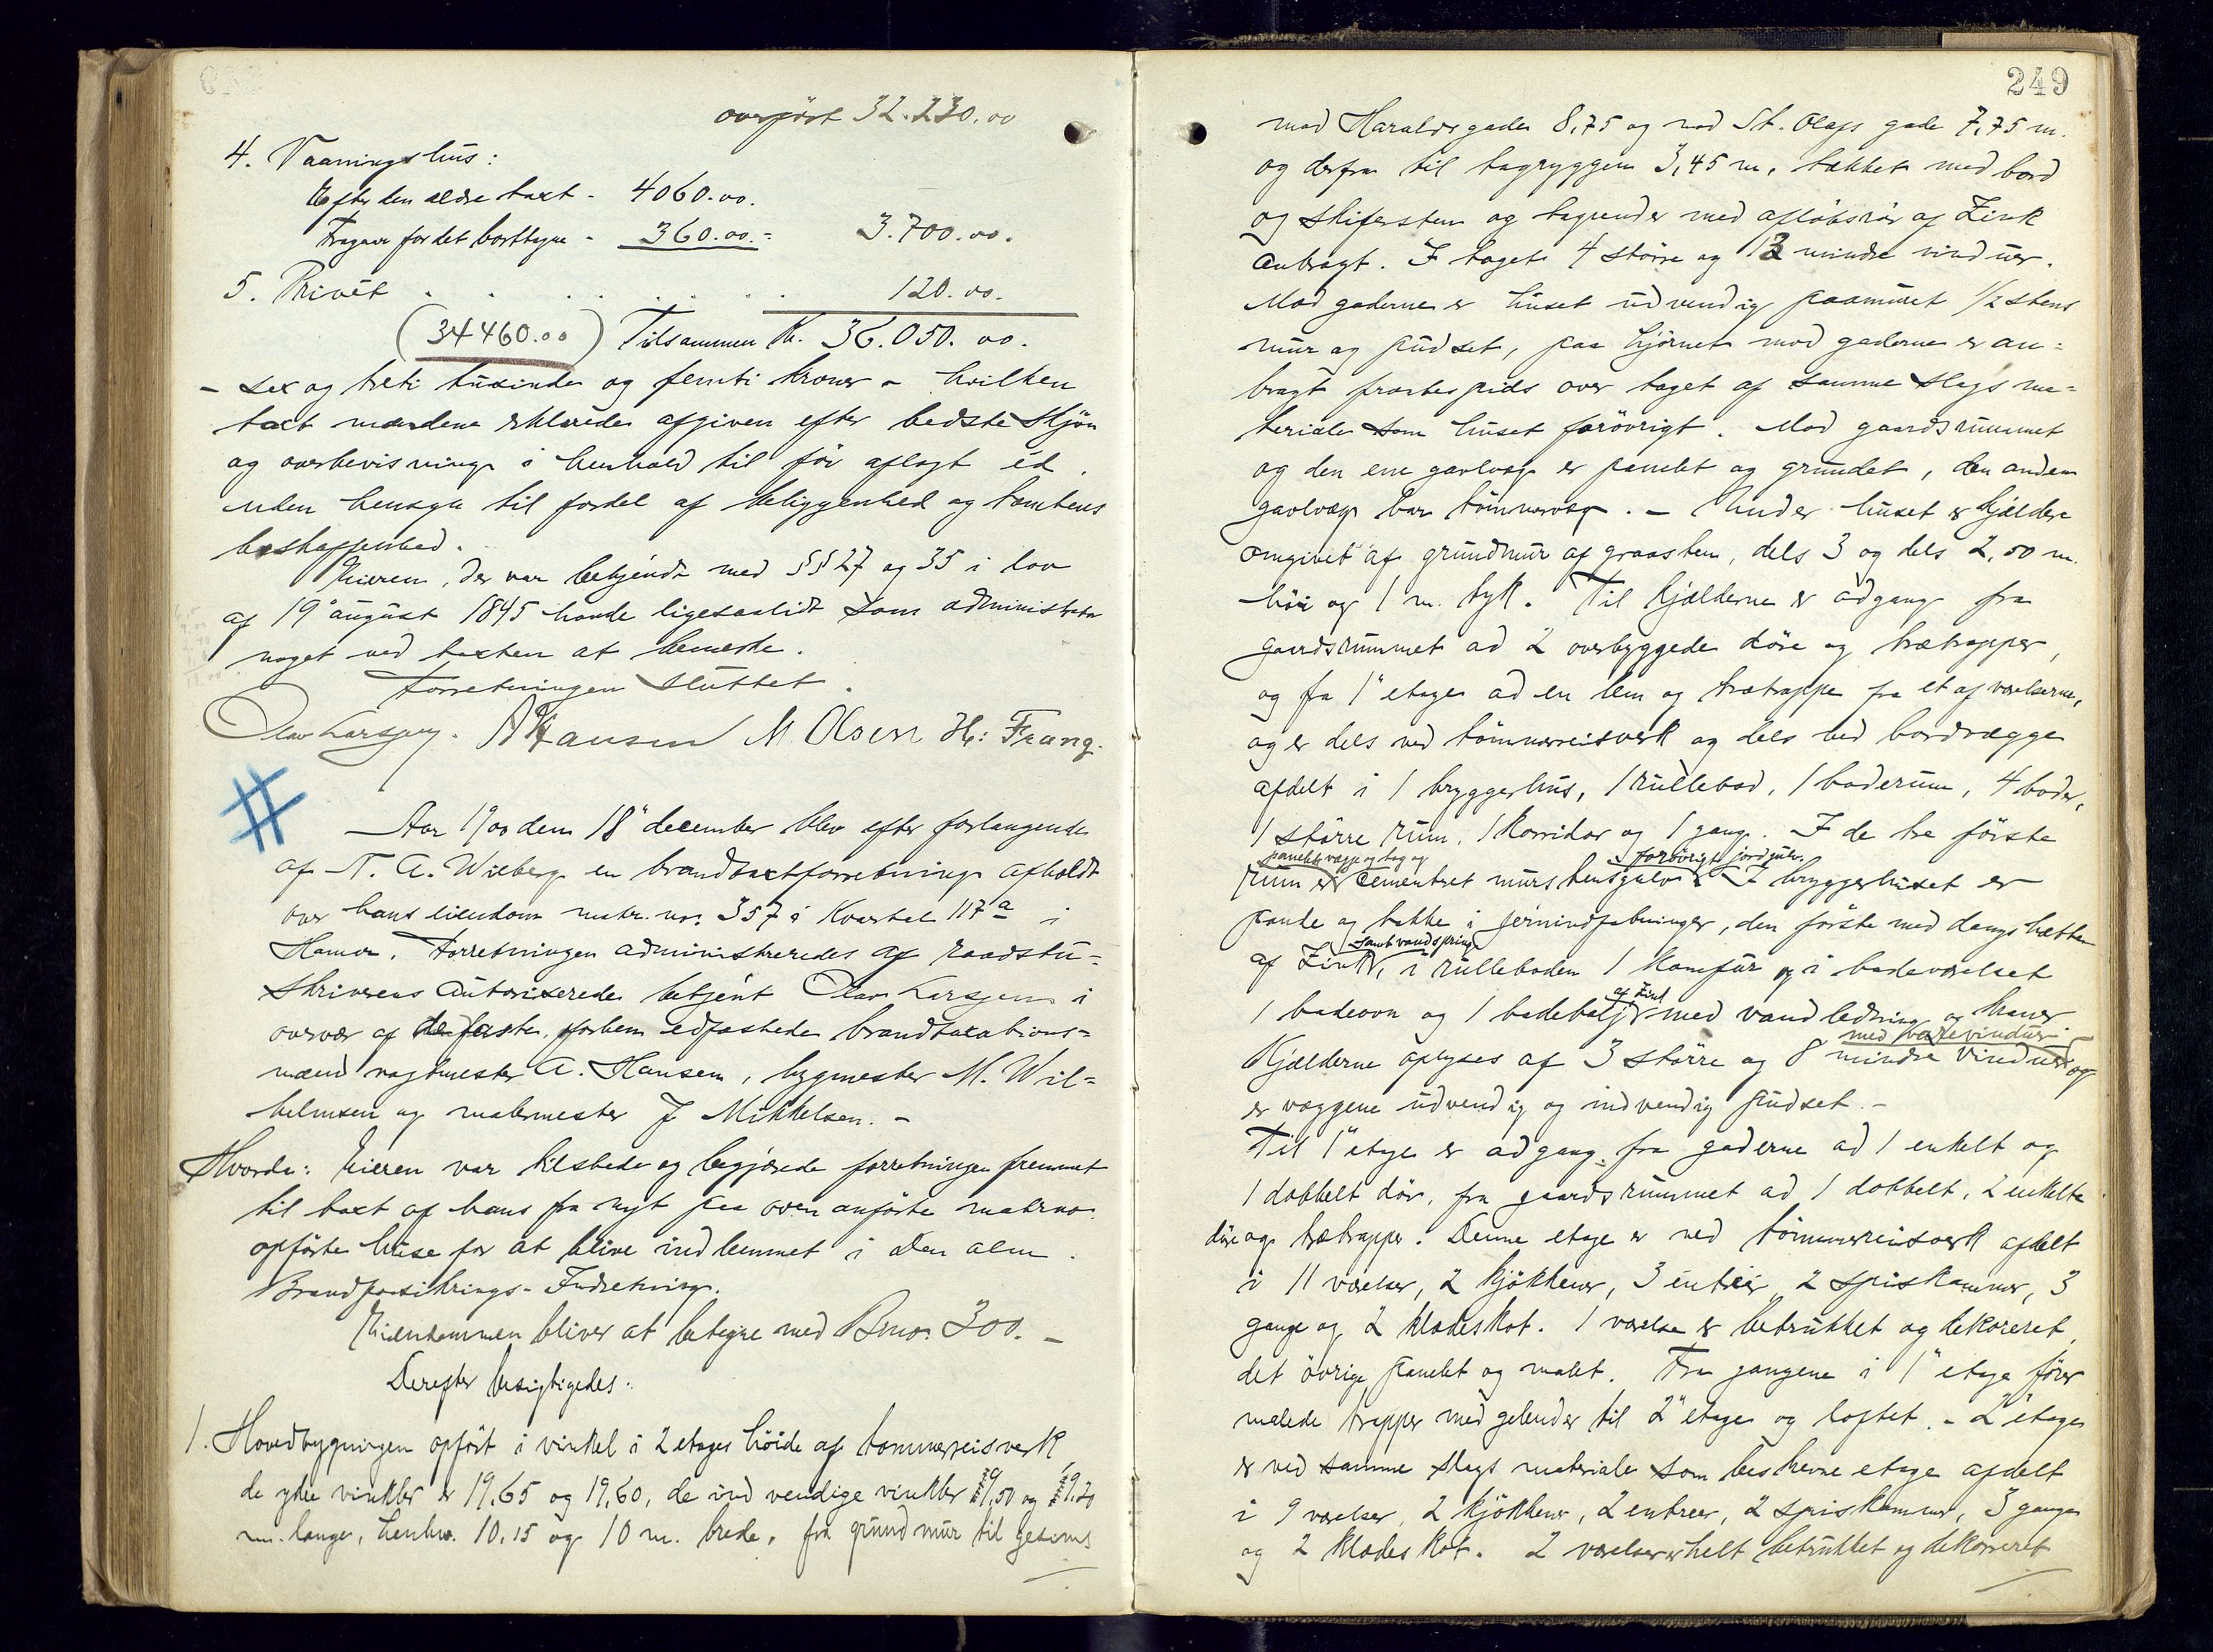 overført 32.230.00
4. Vaaningshus:
Efter den ældre taxt - 4060.00.
Fragaar for det borttagne - 360.00.= 3.700.00.
5. Privét . . . . . . . 120.00.
(34460.00) Tilsammen Kr. 36.050.00.
- sex og treti tusinde og femti kroner - hvilken
taxt mændene erklærede afgiven efter bedste skjøn
og overbevisning i henhold til før aflagt ed,
uden hensyn til fordel af beliggenhed og tomtens
beskaffenhed.
Eieren, der var bekjendt med §§ 27 og 35 i lov
af 19 august 1845 havde ligesaalidt som administrator
noget ved taxten at bemerke.
Forretningen sluttet.
Olav Larsgen. A Hansen M. Olsen H: Frang.
#
Aar 1900 dem 18" december blev efter forlangende
af N. A. Wiberg en brandtaxtforretning afholdt
over hans eiendom matr. no. 357 i Kvartal 117a i
Hamar. Forretningen administreredes af raadstu=
skriverens autoriserede betjent Olav Larsgen i
overvær af de faste, forhen edfæstede brandtaxations=
mænd vagtmester A. Hansen, bygmester M. Wil=
helmsen og malermester J Mikkelsen. -
Hvorda: Eieren var tilstede og begjærede forretningen fremmet
til taxt af hans fra nyt paa oven anførte matr no.
opførte huse for at blive indlemmet i den alm.
Brandforsikrings-Indretning.
Eiendommen bliver at betegne med Bmo. 300. -
Derefter besigtigedes:
1. Hovedbygningen opført i vinkel i 2 etages høide af tømmerreisverk,
de ydre vinkler er 19,65 og 19,60, de indvendige vinkler 9,50 og 9,20
m. lange, henhv. 10,15 og 10 m. brede, fra grundmur til gesims
249
mod Haraldsgade 8,75 og mod St. Olafs gade 7,75 m.
og derfra til tagryggen 3,45 m, takket med bord
og skifersten og tagrender med afløbsrør af Zink
anbragt. I taget 4 større og 13 mindre vinduer.
Mod gaderne er huset udvendig paamuret 1/2 stens
mur og pudset, paa hjørnet mod gaderne er an=
bragt frontespids over taget af samme slags ma=
teriale som huset forøvrigt. Mod gaardsrummet
og den ene gavlvæg er panelet og grundet, den anden
gavlvæg bar tømmervæg. - Under huset er kjælder
omgivet af grundmur af graasten, dels 3 og dels 2,50 m.
høi og 1 m. tyk. Til kjælderne er adgang fra
gaardsrummet ad 2 overbyggede døre og trætrapper,
og fra 1" etage ad en lem og trætrappe fra et af værelserne,
og er dels ved tømmerreisverk og dels ved bordvægge
afdelt i 1 bryggerhus, 1 rullebod, 1 baderum, 4 boder,
1 større rum, 1 korridor og 1 gang. I de tre første
panelte vægge og tag og forøvrigt jordgulv.
rum er cementeret murstensgulv. I bryggerhuset er
pande og takke i jernindfatninger, den første med damphætte
samt vandspring
af Zink, i rulleboden 1 komfur og i badeværelset
af Zink
1 badeovn og 1 badebalje med vandledning og kaner
med varevinduer
Kjælderne oplyses af 3 større og 8 mindre vinduer og
er væggene udvendig og indvendig pudset. -
Til 1" etage er adgang fra gaderne ad 1 enkelt og
1 dobbelt dør, fra gaardsrummet ad 1 dobbelt, 2 enkelte
døre og trætrapper. Denne etage er ved tømmerreisverk afdelt
i 11 værelser, 2 kjøkkener, 3 entréer, 2 spiskammer, 3
gange og 2 klædeskot. 1 værelse er betrukket og dekoreret,
det øvrige panelet og malet. Fra gangene i 1" etage fører
malede trapper med gelender til 2" etage og loftet. - 2" etage
er ved samme slags materiale som beskrevne etage afdelt
i 9 værelser, 2 kjøkkener, 2 entreer, 2 spiskammer, 3 gange
og 2 klædeskot. 2 værelser er helt betrukket og dekoreret